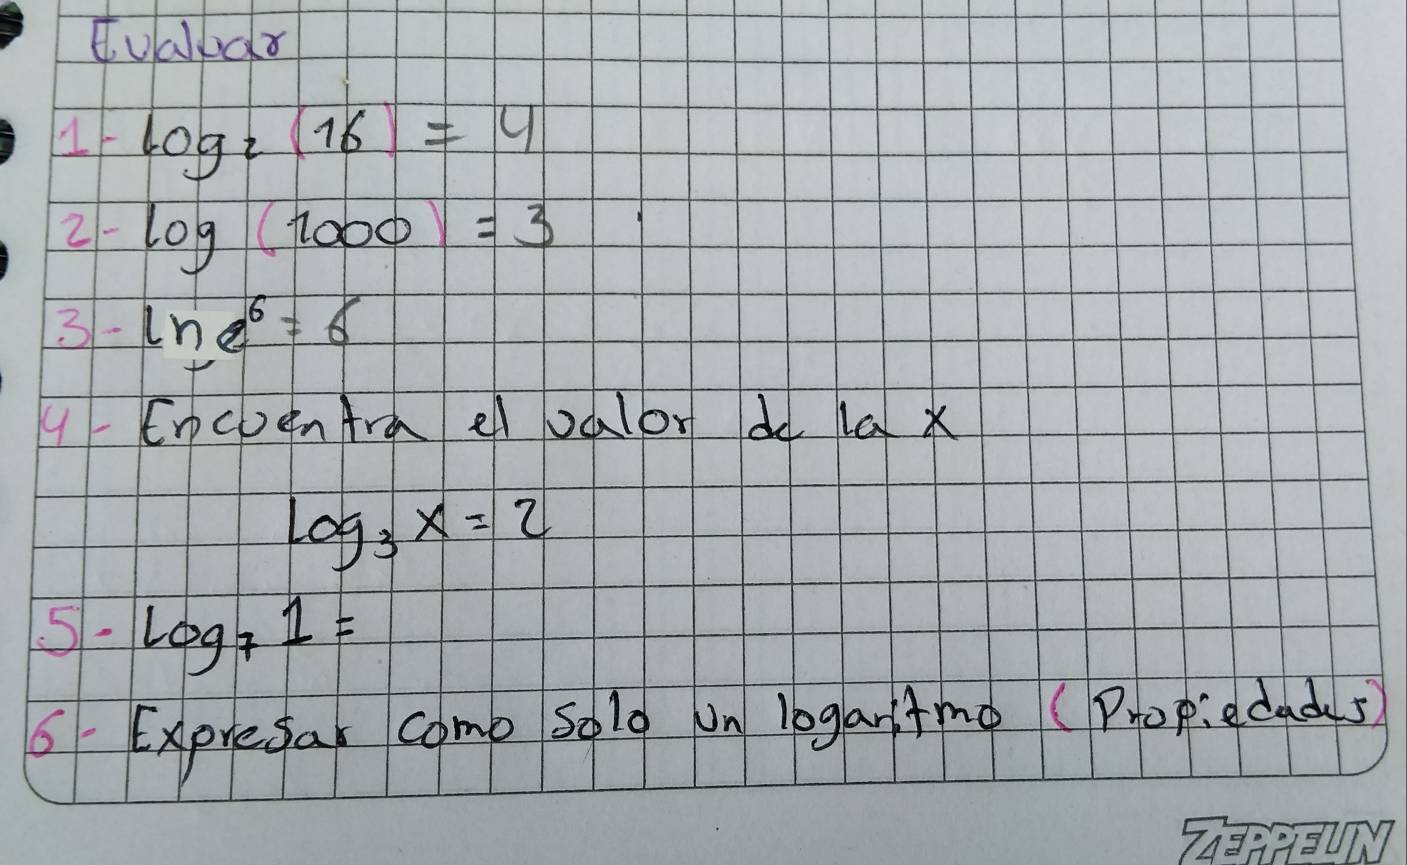 Evaluar
1- log₂ (16) = 4
2- log (1000) = 3
3- ln e⁶ = 6
4- Encuentra el valor de la x
log₃ x = 2
5- log₇ 1 =
6- Expresar como solo un logaritmo (Propiedades)
ZEPPELIN